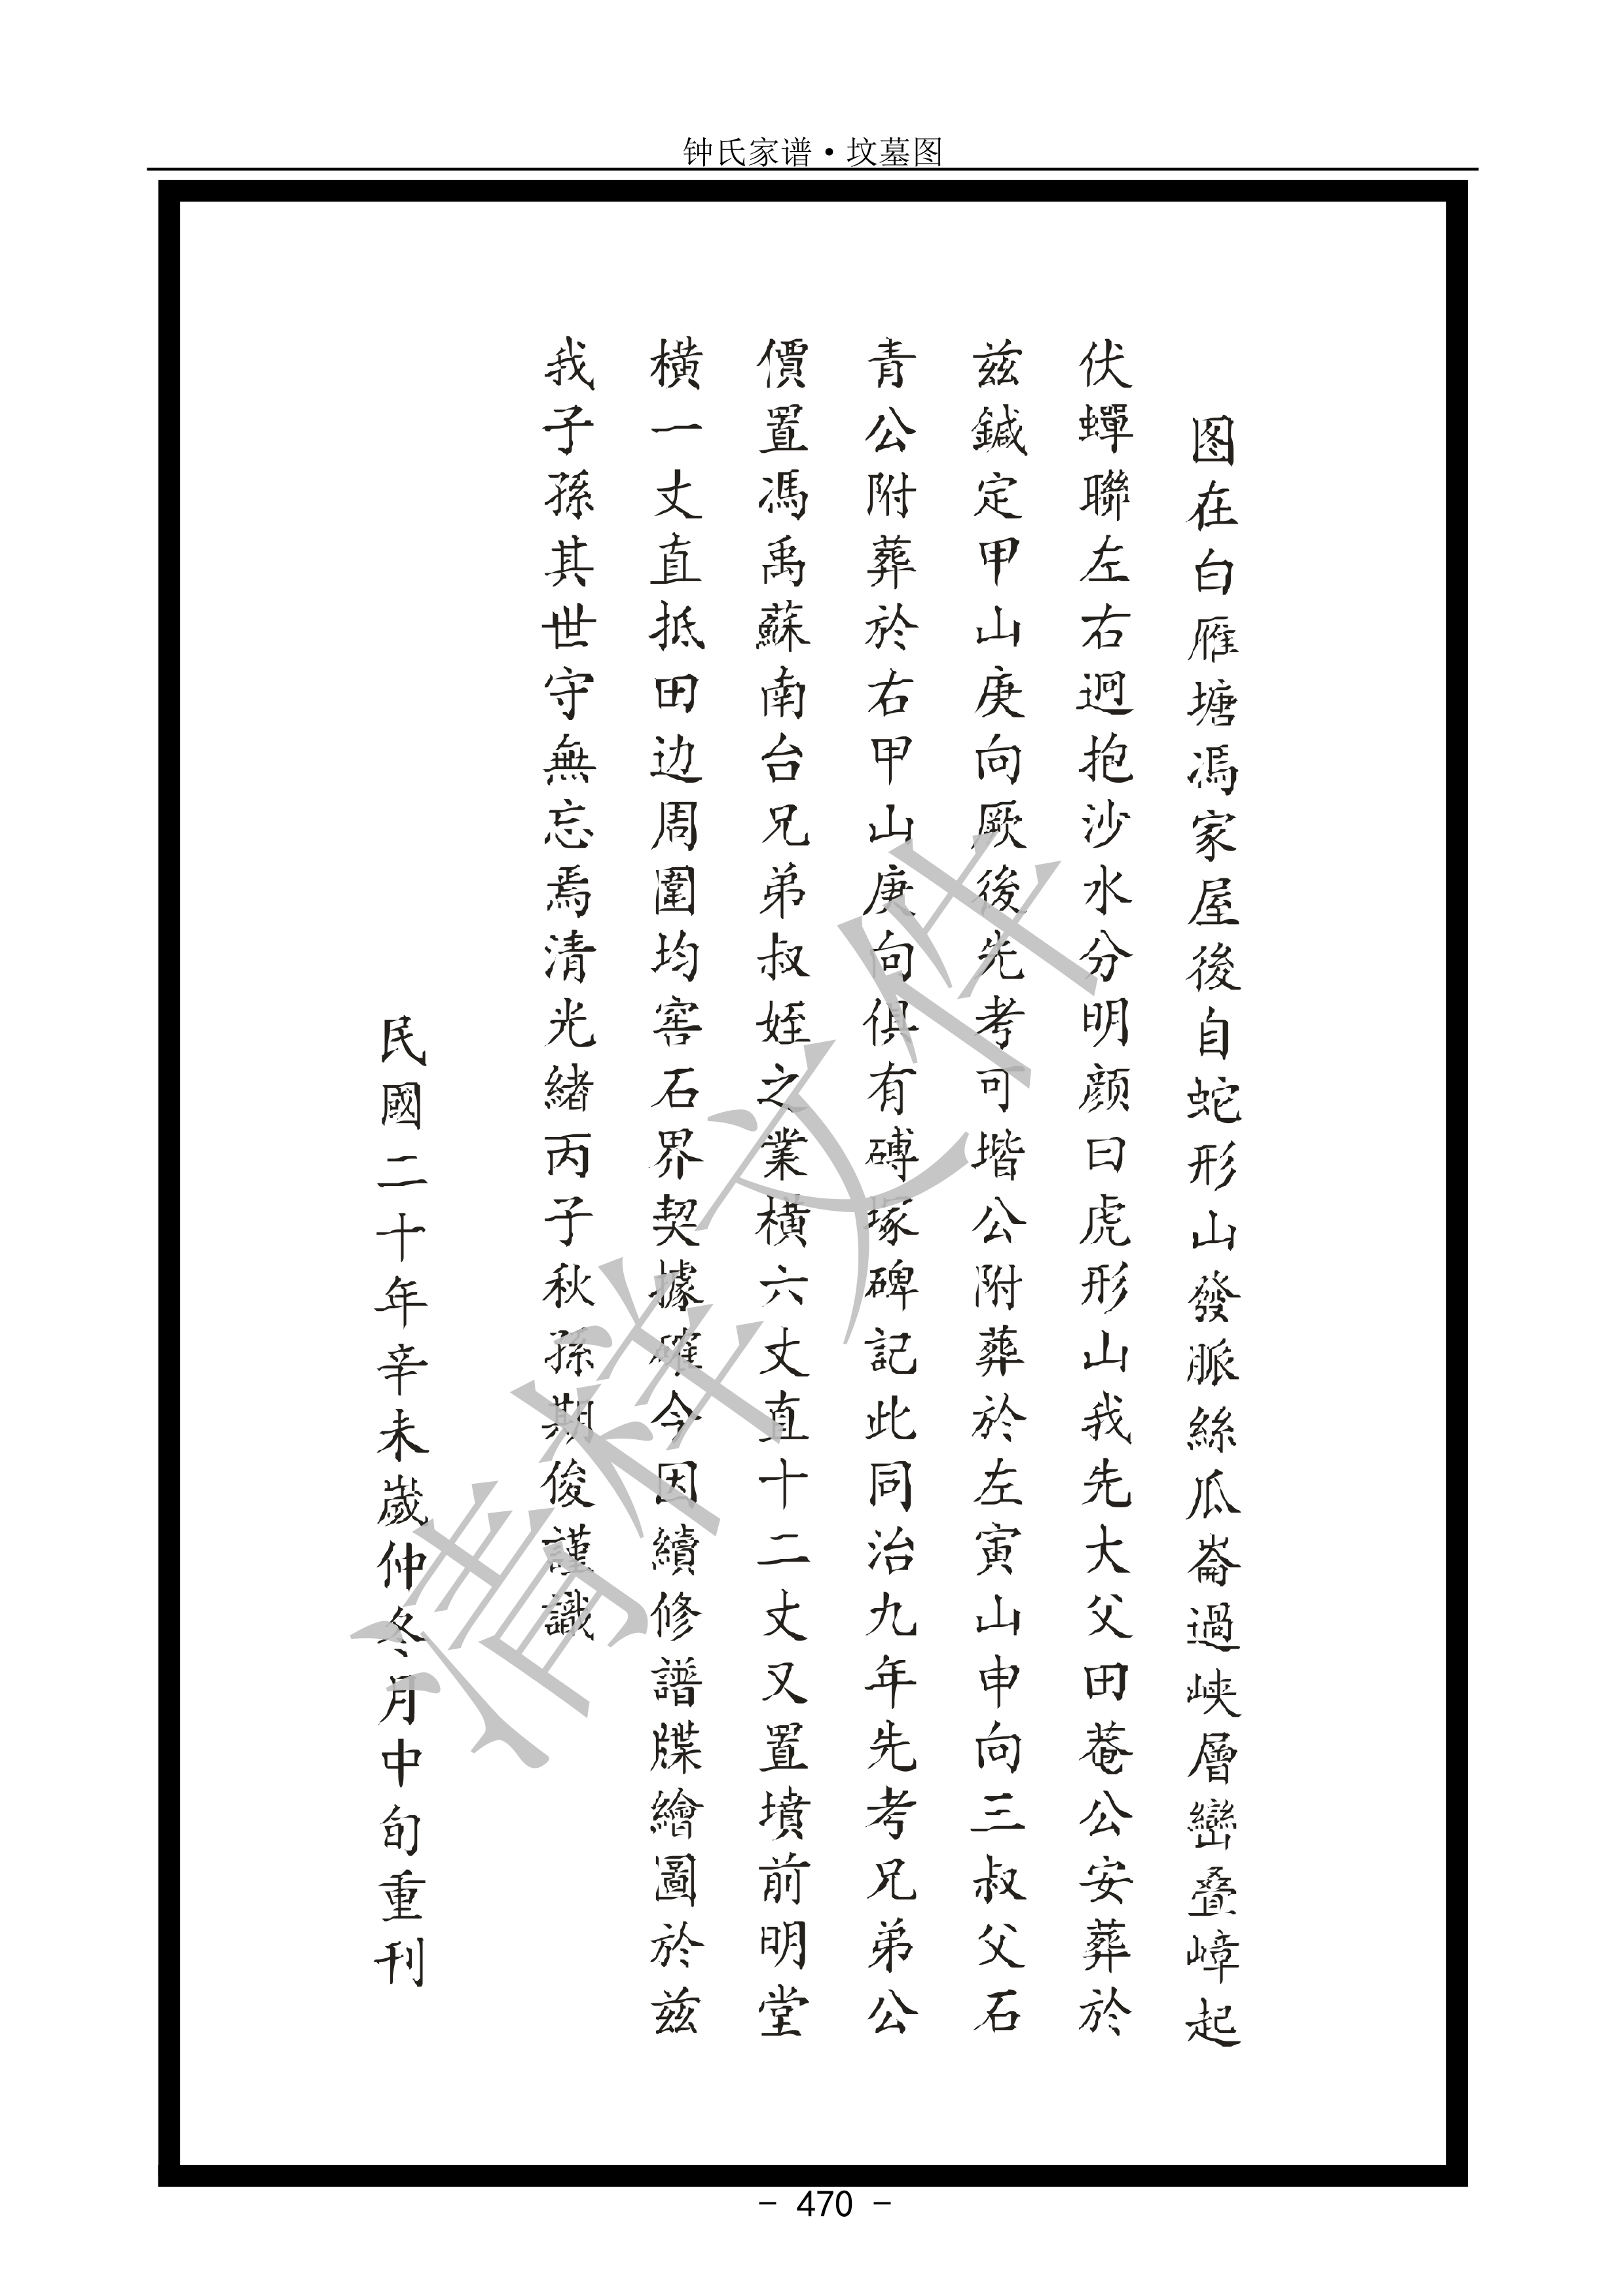 钟氏家谱·坟墓图
图在白雁塘馮家屋後自蛇形山發脈絲瓜崙過峽層巒叠嶂起
伏蟬聯左右迥抱沙水分明颜曰虎形山我先大父田菴公安葬於
兹鍼定甲山庚向厥後先考可堦公附葬於左寅山申向三叔父石
青公附葬於右甲山庚向俱有磚塚碑記此同治九年先考兄弟公
價置馮禹蘇南台兄弟叔姪之業橫六丈直十二丈又置墳前明堂
橫一丈直抵田边周圍均窖石界契據確今因續修譜牒繪圖於兹
我子孫其世守無忘焉清光緒丙子秋孫期俊謹識
民國二十年辛未歲仲冬月中旬重刊
清样文件
- 470 -